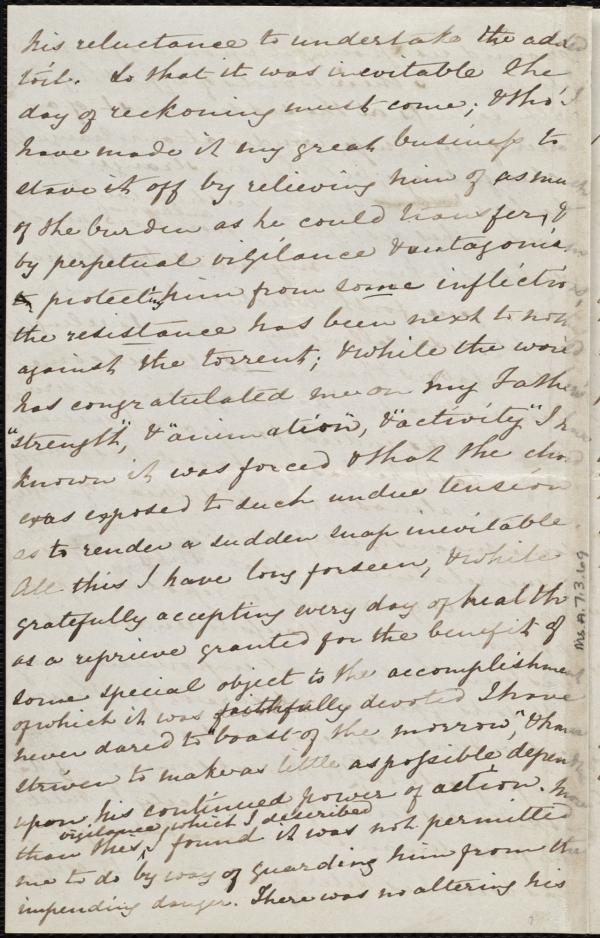 his reluctance to undertake the added
toil. So that it was inevitable the
day of reckoning must come; & tho' I
have made it my great business to
stave it off by relieving him of as much
of the burden as he could transfer, &
by perpetual vigilance & antagonis
protecting him from some inflictio
the resistance has been next to noth
against the torrent; & while the world
has congratulated me on my Father's
"strength", & "animation", & "activity" I have
known it was forced & that the chord
was exposed to such undue tension
as to render a sudden snap inevitable.
All this I have long forseen, & while
gratefully accepting every day of health
as a reprieve granted for the benefit of
some special object to the accomplishment
of which it was faithfully devoted I have
never dared to "boast of the morrow", & have
striven to make as little as possible depend
upon his continued power of action. More
vigilance, which I described
than this, I found it was not permitted
me to do by way of guarding him from the
impending danger. There was no altering his
Ms. A. 7. 3. 69